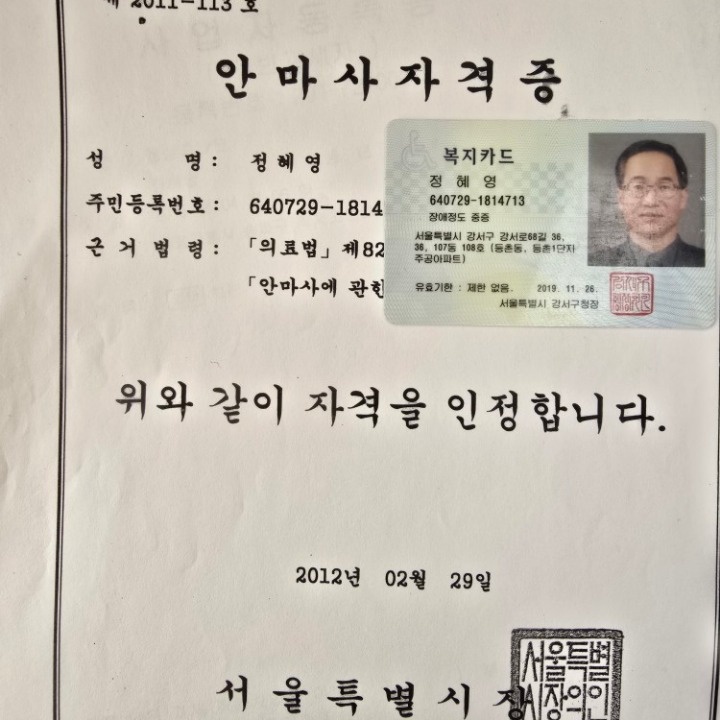 제 2011-113 호
안마사자격증
성 명 : 정혜영
주민등록번호 : 640729-1814
근거법령 : 「의료법」 제82
「안마사에 관한
복지카드
정 혜 영
640729-1814713
장애정도 중증
서울특별시 강서구 강서로68길 36,
36, 107동 108호 (등촌동, 등촌1단지
주공아파트)
유효기한 : 제한 없음. 2019. 11. 26.
서울특별시 강서구청장
위와 같이 자격을 인정합니다.
2012년 02월 29일
서울특별시장
서울특별
시장의인